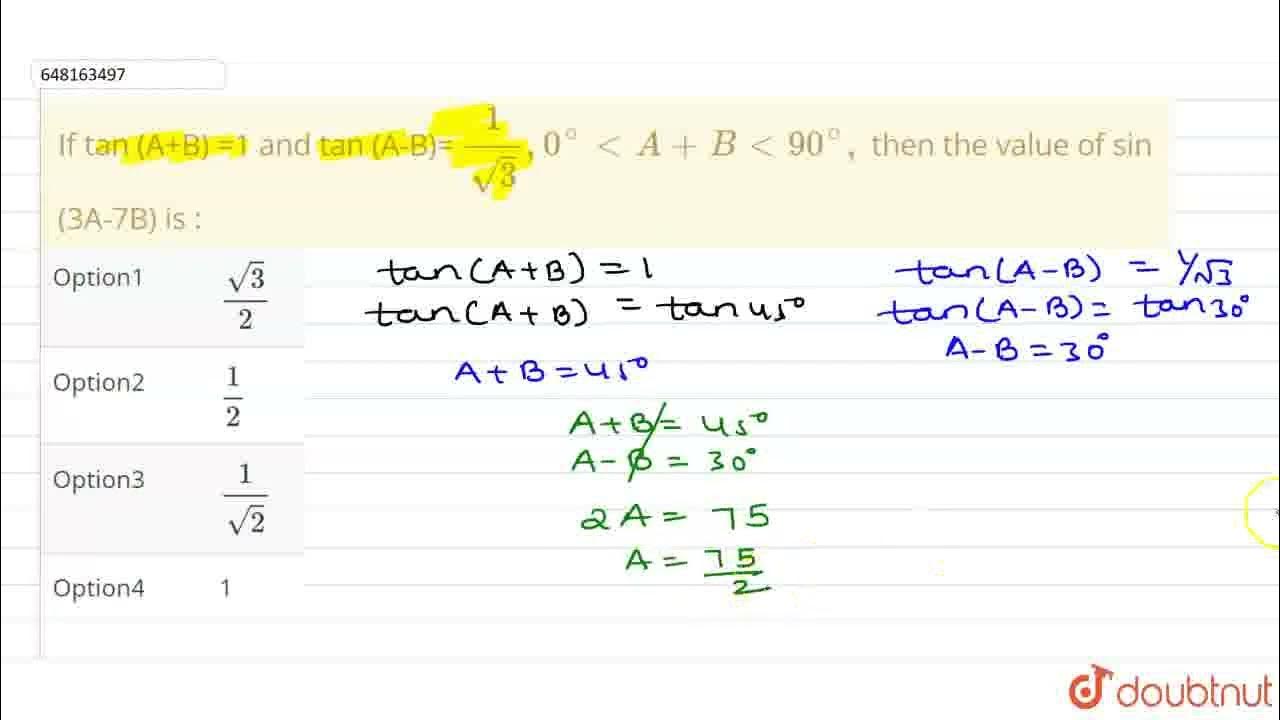 648163497
If tan (A+B) =1 and tan (A-B)= 1/√3, 0° < A + B < 90°, then the value of sin
(3A-7B) is :
Option1 √3/2
Option2 1/2
Option3 1/√2
Option4 1
tan(A+B) = 1
tan(A+B) = tan 45°
A+B = 45°
tan(A-B) = 1/√3
tan(A-B) = tan 30°
A-B = 30°
A+B = 45°
A-B = 30°
2A = 75
A = 75/2
doubtnut